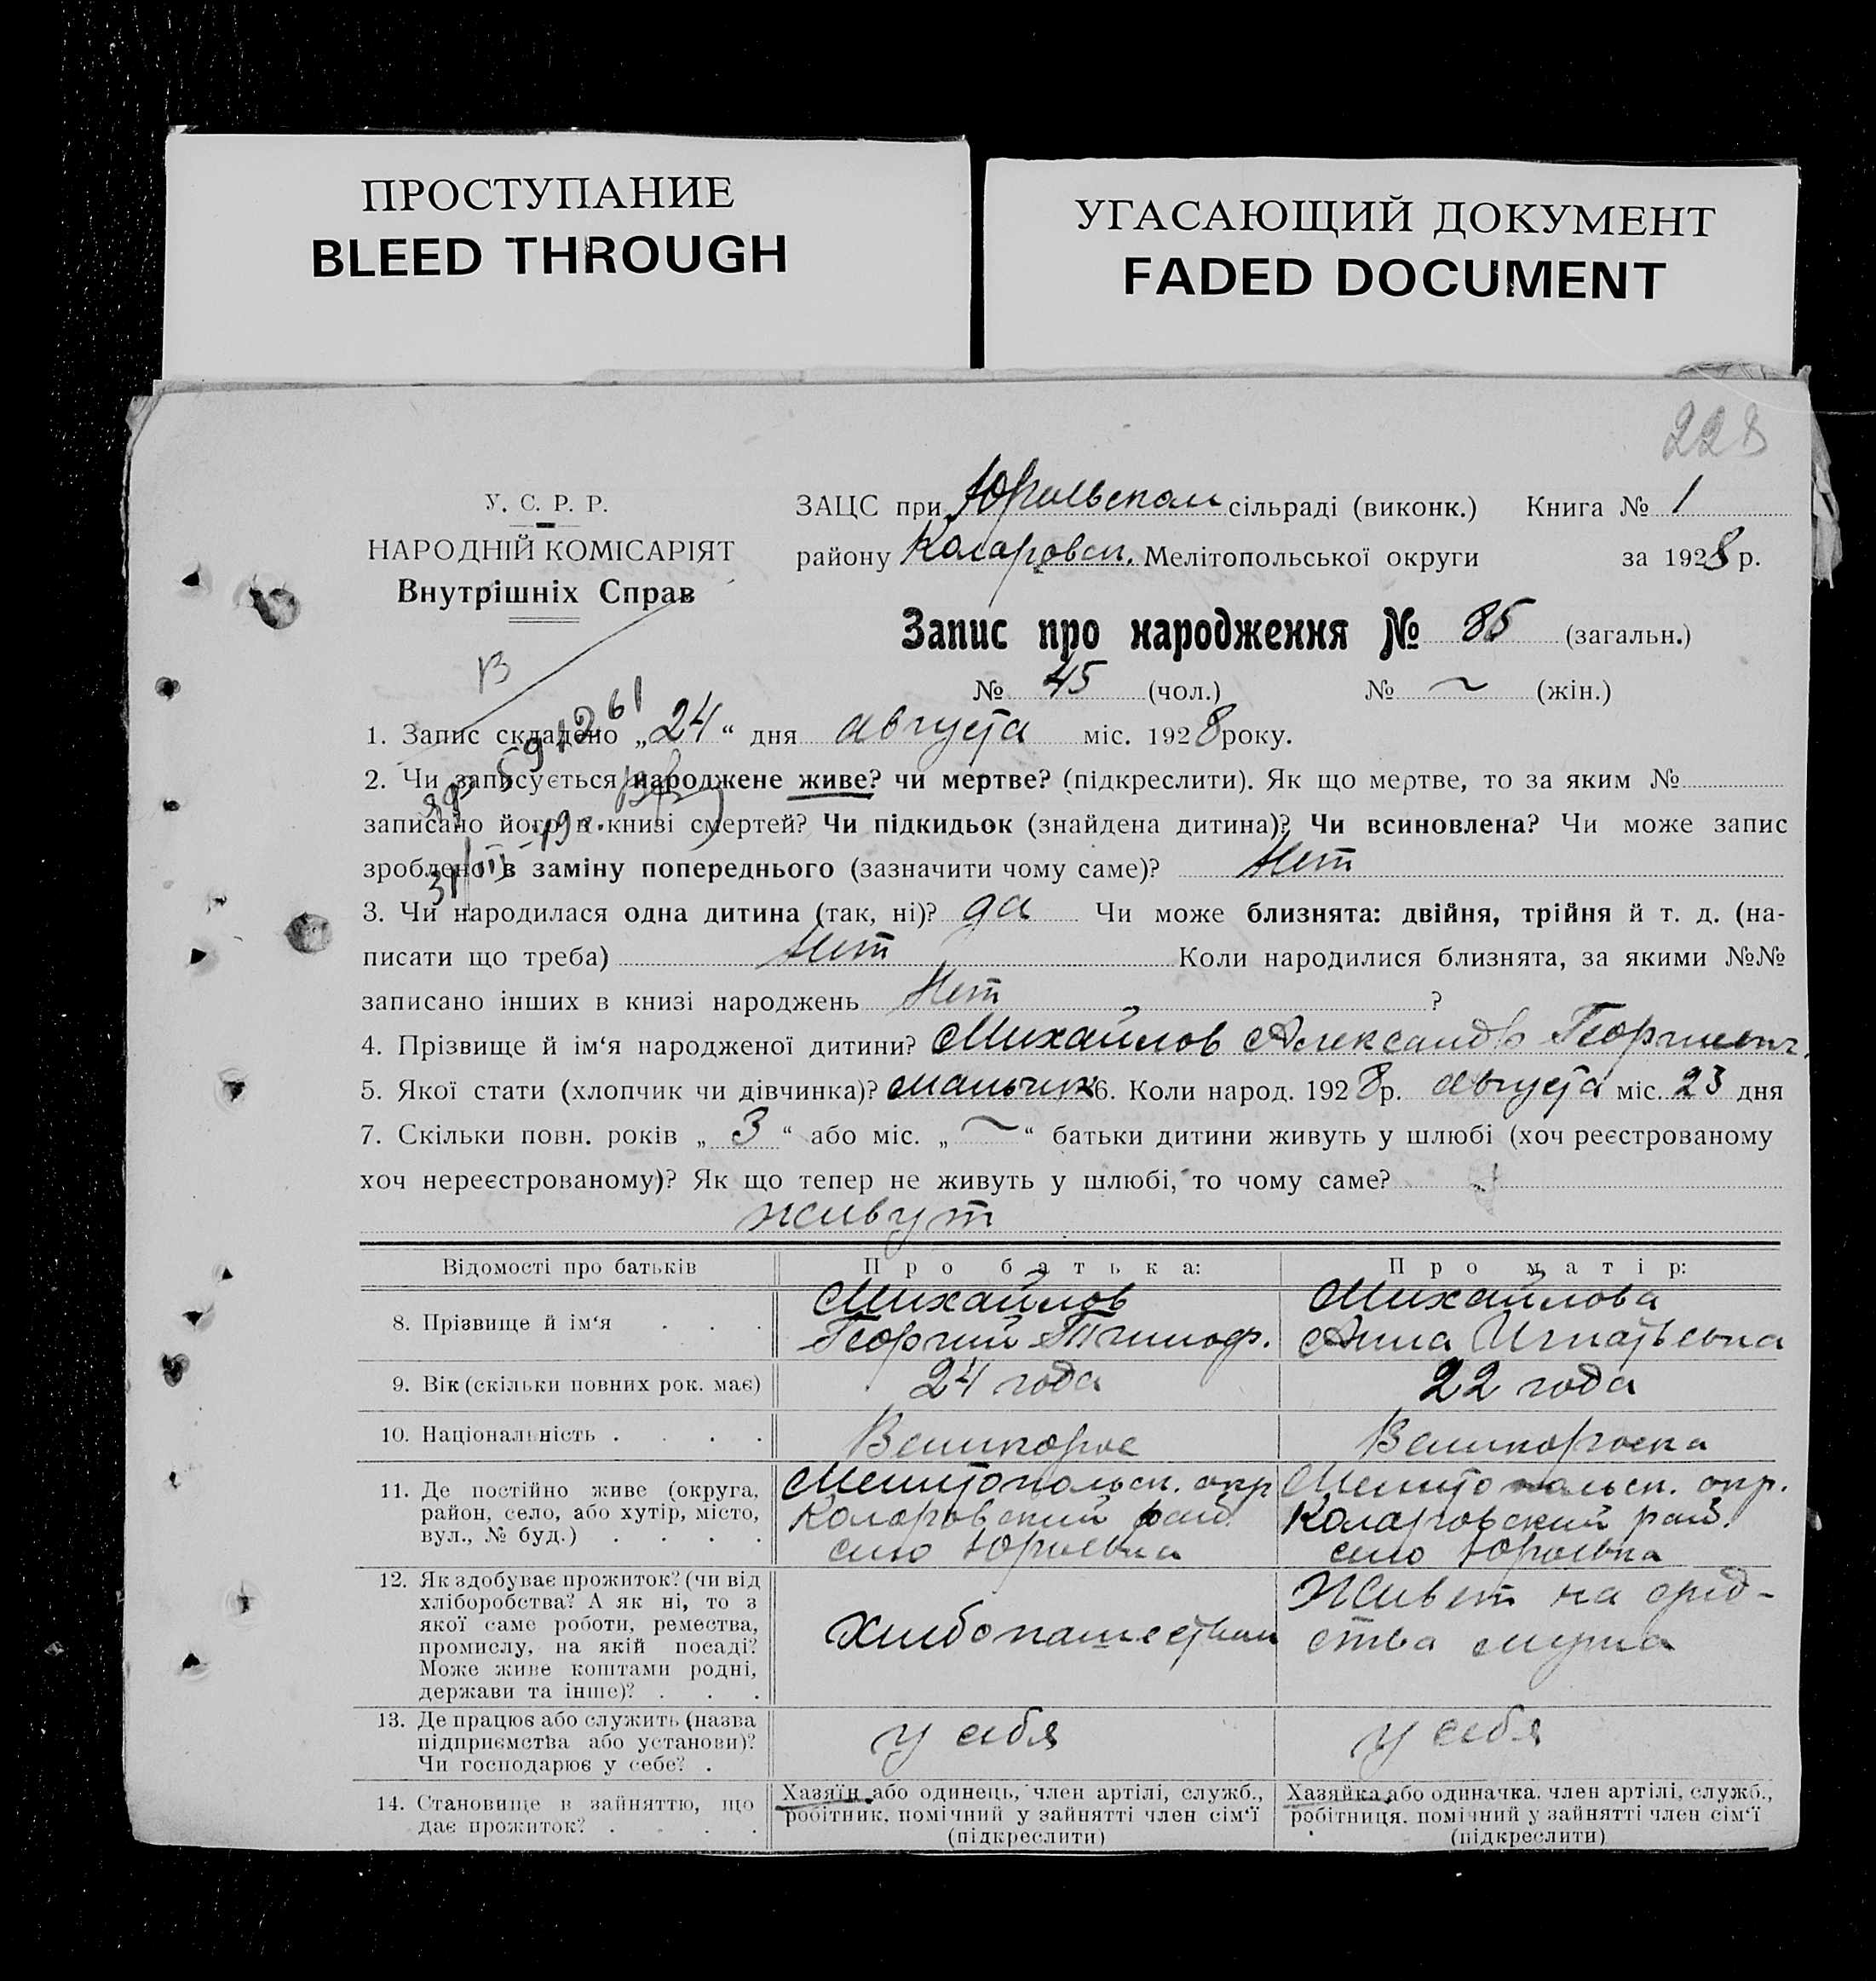 ПРОСТУПАНИЕ
BLEED THROUGH
УГАСАЮЩИЙ ДОКУМЕНТ
FADED DOCUMENT
228
У. С. Р. Р.
НАРОДНІЙ КОМІСАРІЯТ
Внутрішніх Справ
ЗАЦС при Юрьевском сільраді (виконк.) Книга № 1
району Коларовск. Мелітопольської округи за 1928 р.
Запис про народження № 85 (загальн.)
№ 45 (чол.) № ~ (жін.)
1. Запис складено „24“ дня августа міс. 1928 року.
2. Чи записується народжене живе? чи мертве? (підкреслити). Як що мертве, то за яким №
записано його в книзі смертей? Чи підкидьок (знайдена дитина)? Чи всиновлена? Чи може запис
зроблено в заміну попереднього (зазначити чому саме)? Нет
3. Чи народилася одна дитина (так, ні)? да Чи може близнята: двійня, трійня й т. д. (на-
писати що треба) Нет Коли народилися близнята, за якими №№
записано інших в книзі народжень Нет ?
4. Прізвище й ім‘я народженої дитини? Михайлов Александр Георгиевич.
5. Якої стати (хлопчик чи дівчинка)? мальчик 6. Коли народ. 1928 р. августа міс. 23 дня
7. Скільки повн. років „3“ або міс. „~“ батьки дитини живуть у шлюбі (хоч реєстрованому
хоч нереєстрованому)? Як що тепер не живуть у шлюбі, то чому саме?
живут
Відомості про батьків Про батька: Про матір:
8. Прізвище й ім‘я . . .
Михайлов
Георгий Тимоф.
Михайлова
Анна Игнатьевна
9. Вік (скільки повних рок. має) 24 года 22 года
10. Національність . . . . Великорос Великороска
11. Де постійно живе (округа,
район, село, або хутір, місто,
вул., № буд.) . . . .
Мелитопольск. окр
Коларовский рай.
село Юрьевка
Мелитопольск. окр.
Коларовский рай.
село Юрьевка
12. Як здобуває прожиток? (чи від
хліборобства? А як ні, то з
якої саме роботи, ремества,
промислу, на якій посаді?
Може живе коштами родні,
держави та інше)? . . .
Хлебопашеством
Живет на сред-
ства мужа
13. Де працює або служить (назва
підприємства або установи)?
Чи господарює у себе? .
у себя
у себя
14. Становище в зайняттю, що
дає прожиток? . . . .
Хазяїн або одинець, член артілі, служб.,
робітник, помічний у зайнятті член сім‘ї
(підкреслити)
Хазяйка або одиначка, член артілі, служб.,
робітниця, помічний у зайнятті член сім‘ї
(підкреслити)